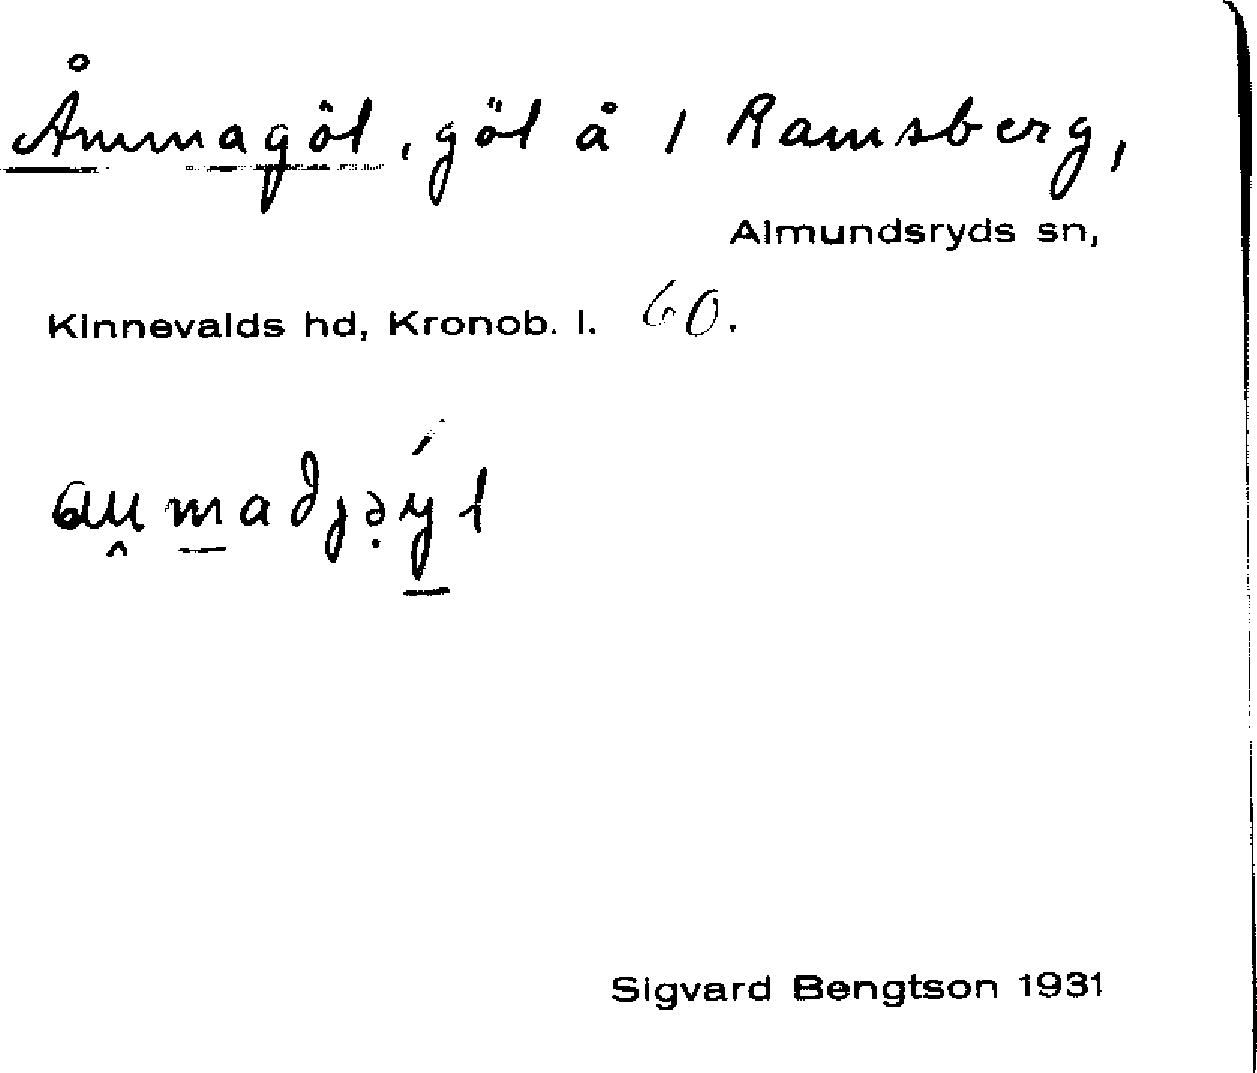 Åmmagöl, göl å 1 Ramsberg,
Almundsryds sn,
Kinnevalds hd, Kronob. l. 60.
Sigvard Bengtson 1931